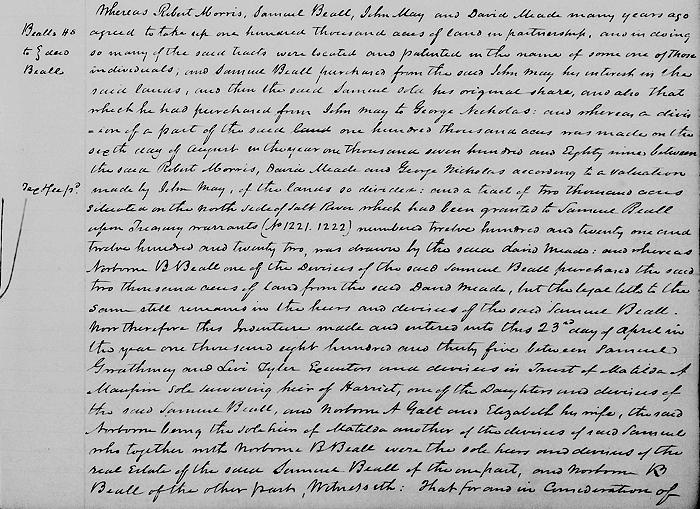 Whereas Robert Morris, Samuel Beall, John May and David Meade many years ago
Bealls Hs
to } deed
Beall
agreed to take up one hundred thousand acres of land in partnership, and in doing
so many of the said tracts were located and patented in the name of some one of those
individuals, and Samuel Beall purchased from the said John May his interest in the
said lands, and then the said Samuel sold his original share, and also that
which he had purchased from John May to George Nicholas: and whereas a divis
=ion of a part of the said land one hundred thousand acres was made on the
sixth day of August in the year one thousand seven hundred and Eighty nine between
the said Robert Morris, David Meade and George Nicholas according to a valuation
Tax & fee pd
made by John May, of the lands so divided: and a tract of two thousand acres
situated on the north side of Salt River which had been granted to Samuel Beall
upon Treasury warrants (No 1221. 1222) numbered twelve hundred and twenty one and
twelve hundred and twenty two, was drawn by the said David Meade: and whereas
Norborne B Beall one of the Devisees of the said Samuel Beall purchased the said
two thousand acres of land from the said David Meade, but the legal title to the
same still remains in the heirs and devisees of the said Samuel Beall.
Now therefore this Indenture made and entered into this 23rd day of April in
the year one thousand eight hundred and thirty five between Samuel
Gwathmey and Levi Tyler Executors and devisees in Trust of Matilda A
Maupin sole surviving heir of Harriet, one of the Daughters and devisees of
the said Samuel Beall, and Norborne A Galt and Elizabeth his wife, the said
Norborne being the sole heir of Matilda another of the devisees of said Samuel
who together with Norborne B Beall were the sole heirs and devisees of the
real Estate of the said Samuel Beall of the one part, and Norborne B
Beall of the other part, Witnesseth: That for and in Consideration of